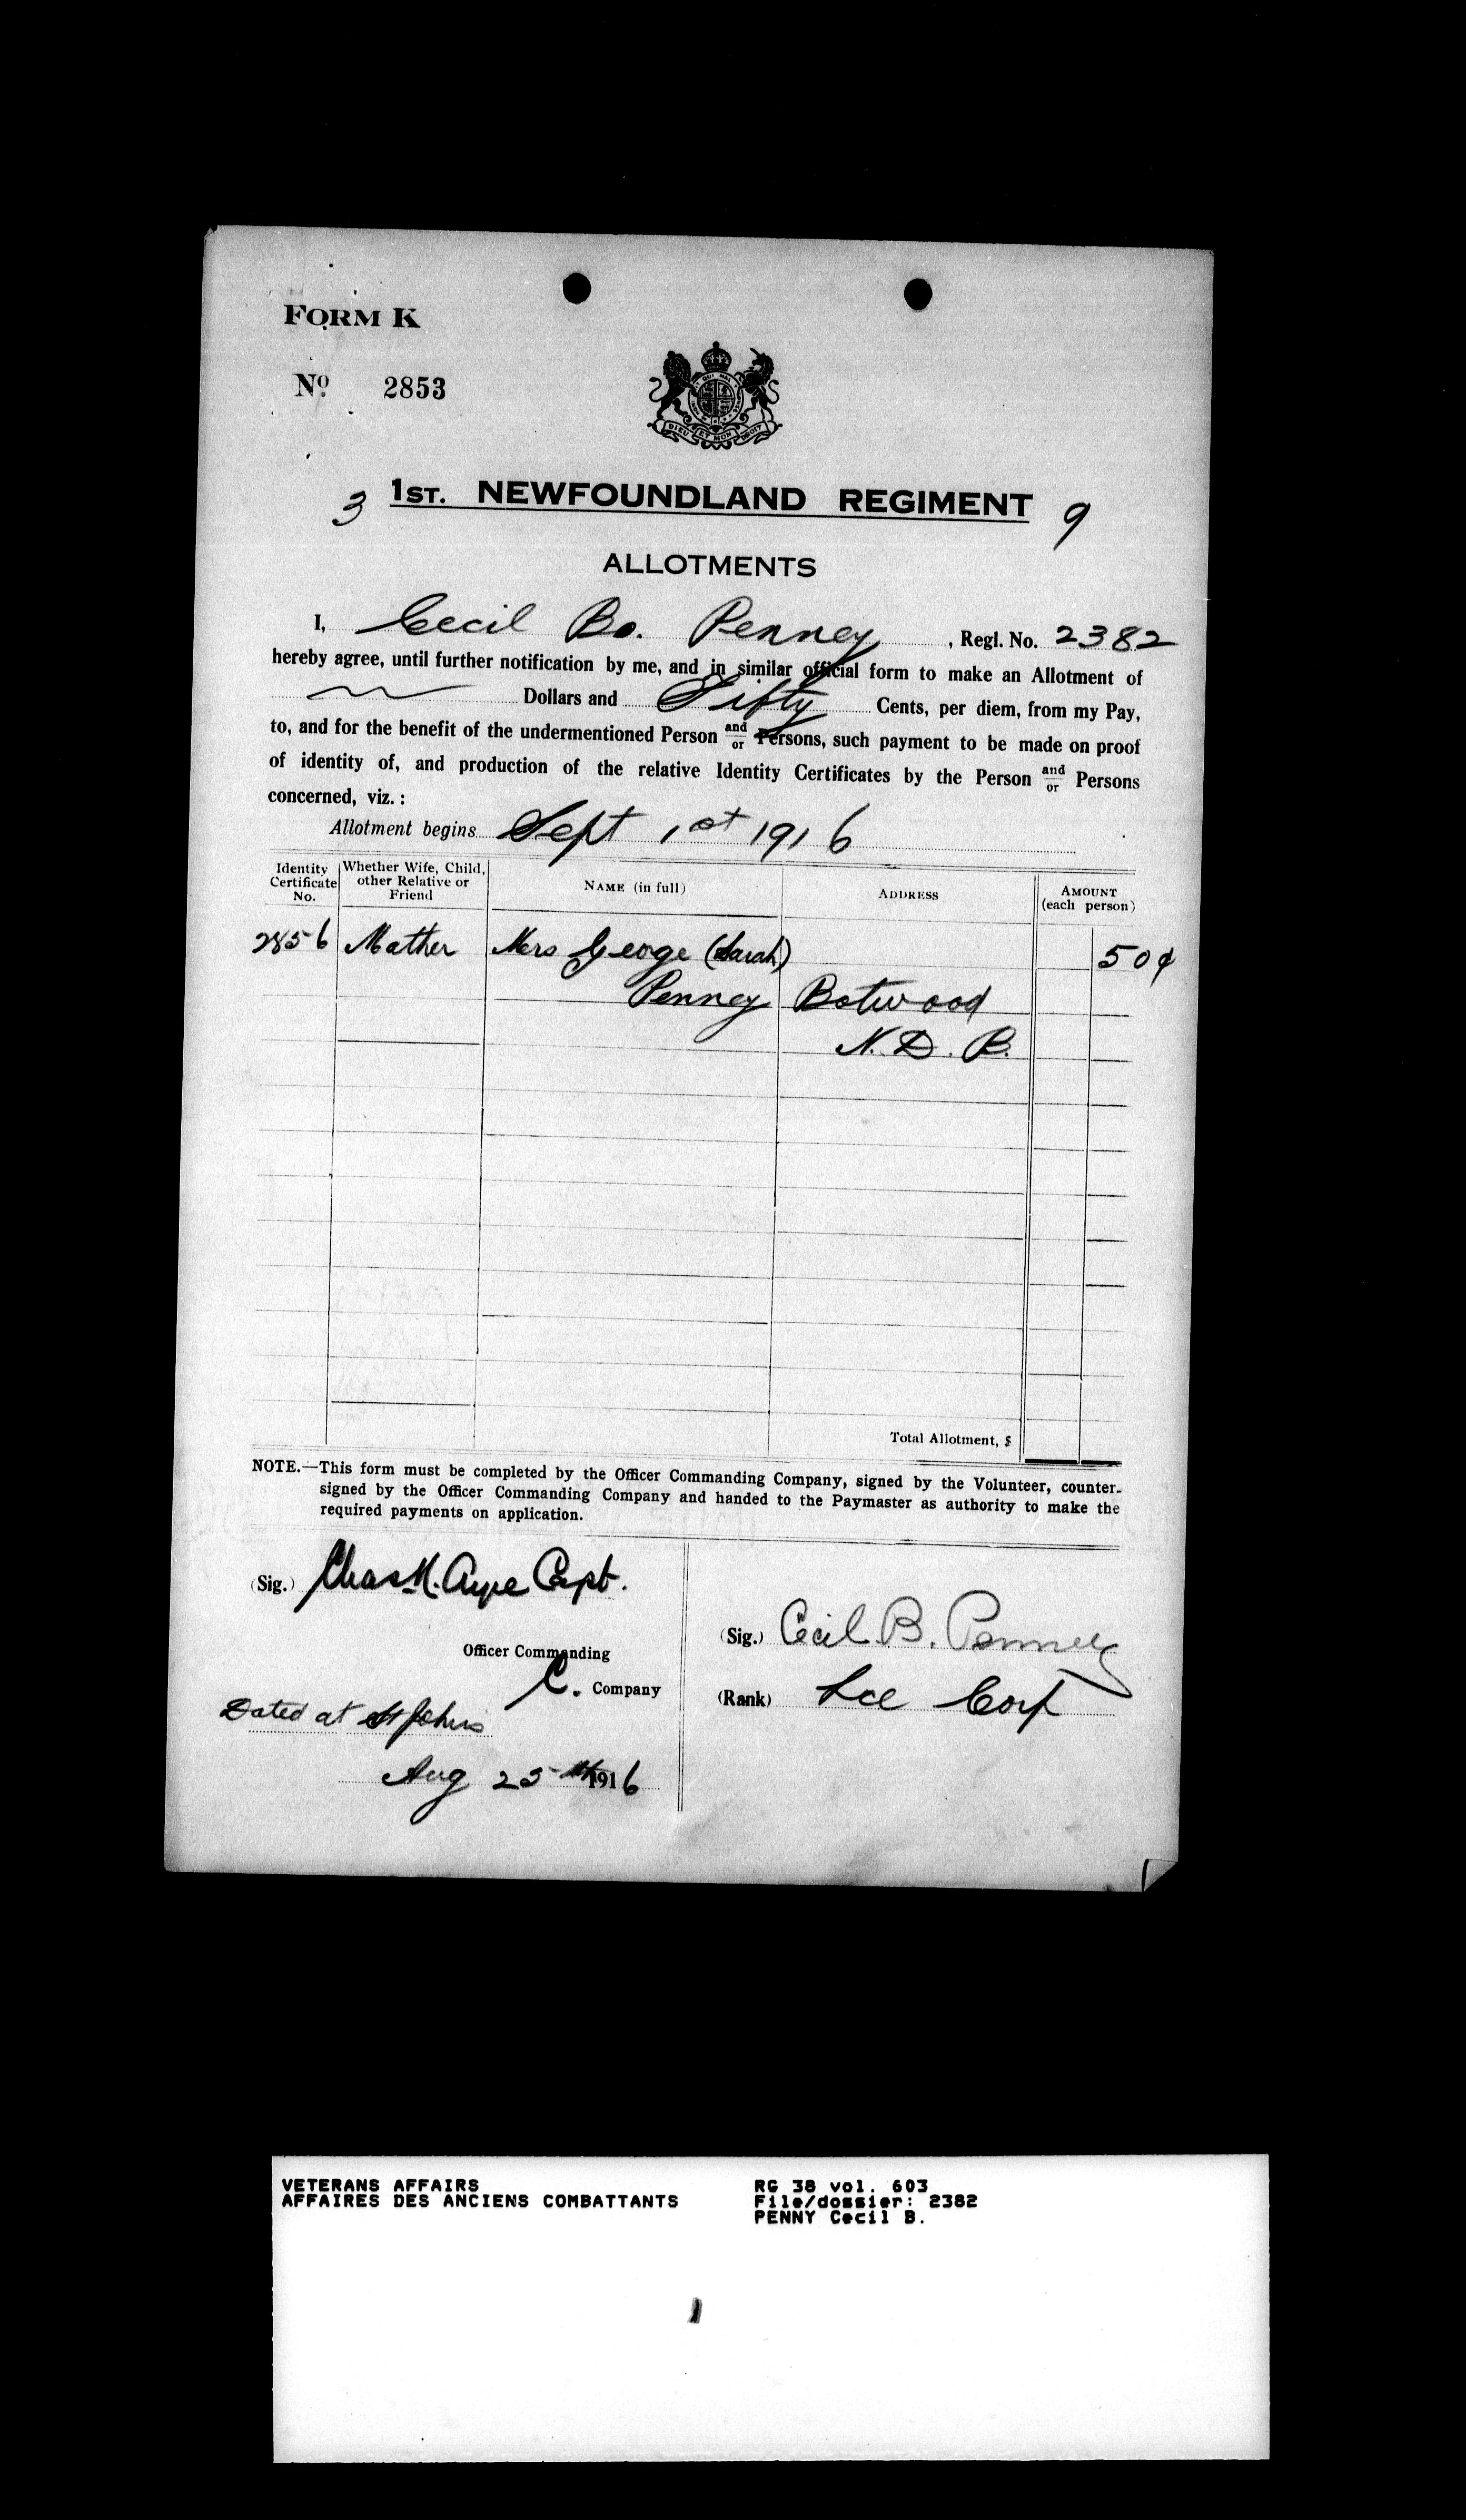 FORM K
No. 2853
DIEU ET MON DROIT
3 1ST. NEWFOUNDLAND REGIMENT 9
ALLOTMENTS
I, Cecil Bo. Penney, Regl. No. 2382
hereby agree, until further notification by me, and in similar official form to make an Allotment of
Dollars and Fifty Cents, per diem, from my Pay,
to, and for the benefit of the undermentioned Person and/or Persons, such payment to be made on proof
of identity of, and production of the relative Identity Certificates by the Person and/or Persons
concerned, viz. :
Allotment begins Sept 1st 1916
Identity Certificate No. Whether Wife, Child, other Relative or Friend NAME (in full) ADDRESS AMOUNT (each person)
2856 Mother Mrs George (Sarah) 50¢
Penney Botwood
N. D. B.
Total Allotment, $
NOTE.—This form must be completed by the Officer Commanding Company, signed by the Volunteer, counter-
signed by the Officer Commanding Company and handed to the Paymaster as authority to make the
required payments on application.
(Sig.) Chas H. Ayre Capt.
(Sig.) Cecil B. Penney
Officer Commanding
C. Company
(Rank) Lce Corp
Dated at St Johns
Aug 25th 1916
VETERANS AFFAIRS RG 38 vol. 603
AFFAIRES DES ANCIENS COMBATTANTS File/dossier: 2382
PENNY Cecil B.